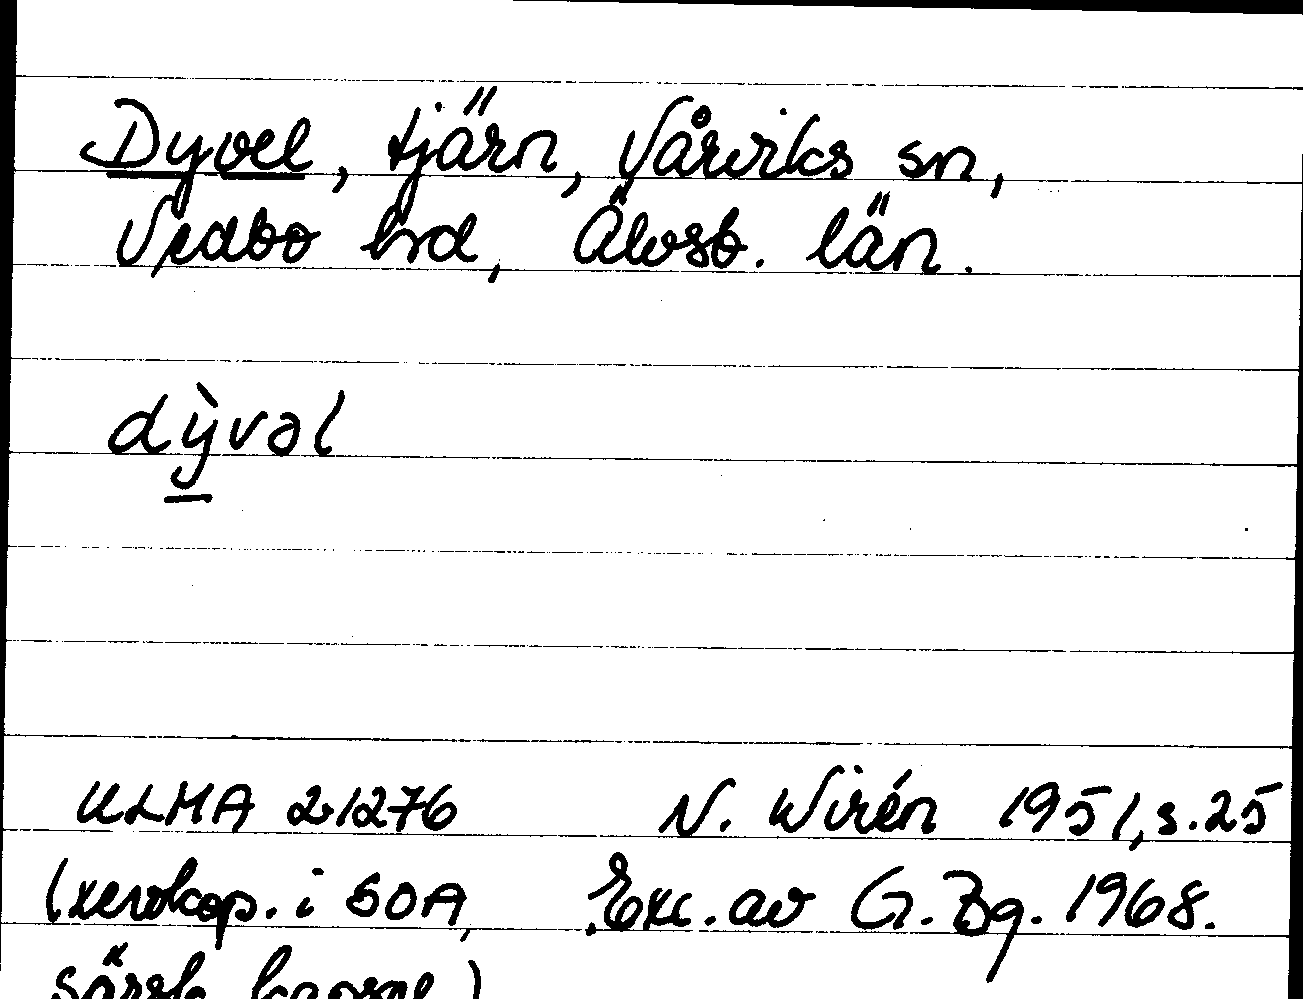 Dyvel, tjärn, Vårviks sn,
Vedbo hd, Älvsb. län.
dỳvəl
ULMA 21276 N. Wirén 1951, s. 25
(xerokop. i SOA, Exc. av G. Bg. 1968.
särsk. kapsel)